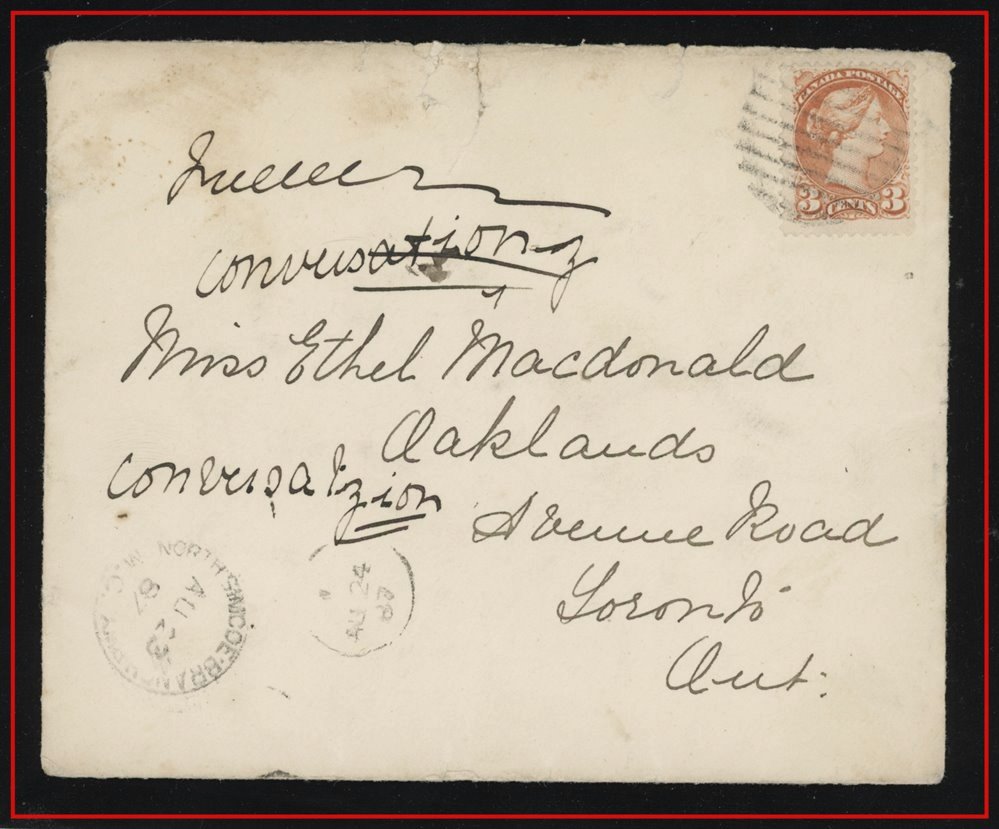 CANADA POSTAGE
3 CENTS 3
conversationz
Miss Ethel Macdonald
Oaklands
conversatzion
Avenue Road
Toronto
Ont.
NORTH SIMCOE BRANCH
AU 23
87
AU 24
87